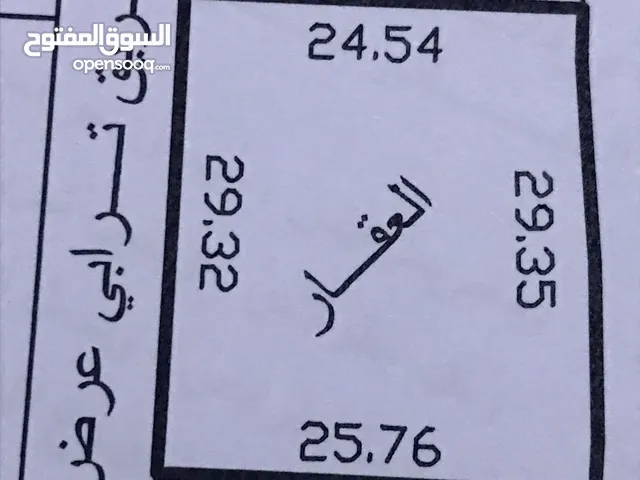 السوق المفتوح
opensooq.com
24.54
29.32
العقار
29.35
25.76
ترابي عرض